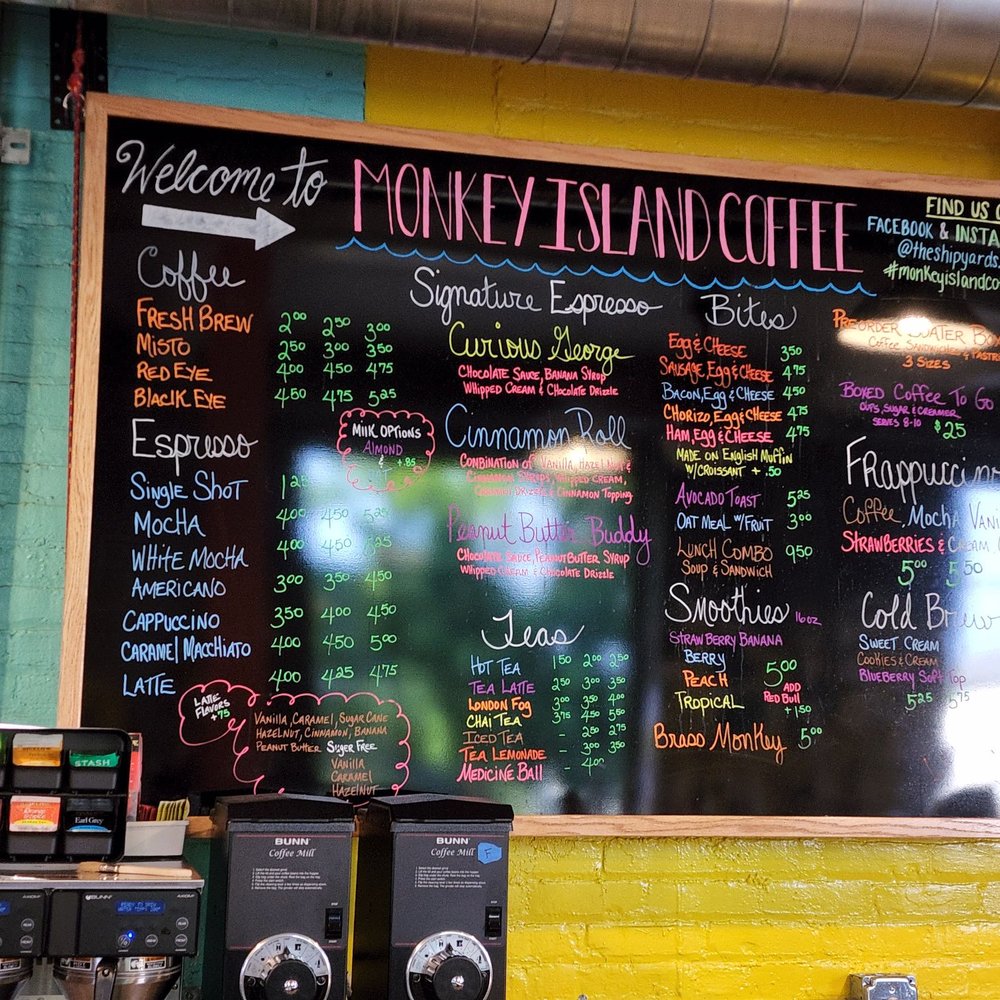 Welcome to MONKEY ISLAND COFFEE
FIND US
FACEBOOK & INSTA
@theshipyards
#monkeyislandco
Coffee
FRESH BREW 2.00 2.50 3.00
MISTO 2.50 3.00 3.50
RED EYE 4.00 4.50 4.75
BLACK EYE 4.50 4.75 5.25
MILK OPTIONS
ALMOND
& +.85
Espresso
SINGLE SHOT
MOCHA 4.00 4.50
WHITE MOCHA 4.00 4.50
AMERICANO 3.00 3.50 4.50
CAPPUCCINO 3.50 4.00 4.50
CARAMEL MACCHIATO 4.00 4.50 5.00
LATTE 4.00 4.25 4.75
LATTE
FLAVORS
+.75
VANILLA, CARAMEL, SUGAR CANE
HAZELNUT, CINNAMON, BANANA
PEANUT BUTTER SUGER FREE
VANILLA
CARAMEL
HAZELNUT
Signature Espresso
Curious George
CHOCOLATE SAUCE, BANANA SYRUP
WHIPPED CREAM & CHOCOLATE DRIZLE
Cinnamon Roll
COMBINATION OF VANILLA, HAZELNUT &
CINNAMON SYRUPS, WHIPPED CREAM,
CARAMEL DRIZLE & CINNAMON TOPPING
Peanut Butter Buddy
CHOCOLATE SAUCE, PEANUT BUTTER SYRUP
WHIPPED CREAM & CHOCOLATE DRIZLE
Teas
HOT TEA 1.50 2.00 2.50
TEA LATTE 2.50 3.00 3.50
LONDON FOG 3.00 3.50 4.00
CHAI TEA 3.75 4.50 5.00
ICED TEA - 2.50 2.75
TEA LEMONADE - 3.00 3.50
MEDICINE BALL - 4.00
Bites
EGG & CHEESE 3.50
SAUSAGE, EGG & CHEESE 4.75
BACON, EGG & CHEESE 4.50
CHORIZO, EGG & CHEESE 4.75
HAM, EGG & CHEESE 4.75
MADE ON ENGLISH MUFFIN
W/CROISSANT + .50
AVOCADO TOAST 5.25
OAT MEAL W/FRUIT 3.00
LUNCH COMBO 9.50
SOUP & SANDWICH
Smoothies 16oz
STRAWBERRY BANANA
BERRY
PEACH 5.00
TROPICAL
ADD
RED BULL
+1.50
Brass Monkey 5.00
PREORDER
COFFEE SANDWICHES & PASTR
3 SIZES
BOXED COFFEE TO GO
CUPS, SUGAR & CREAMER
SERVES 8-10 $25
FRappuccino
COFFEE, MOCHA, VANI
STRAWBERRIES & CREAM
5.00 5.50
Cold Brew
SWEET CREAM
COOKIES & CREAM
BLUEBERRY SOFT TOP
5.25 5.75
STASH
Earl Grey
BUNN
Coffee Mill
BUNN
Coffee Mill
F
BUNN
AXIOM
READY TO BREW